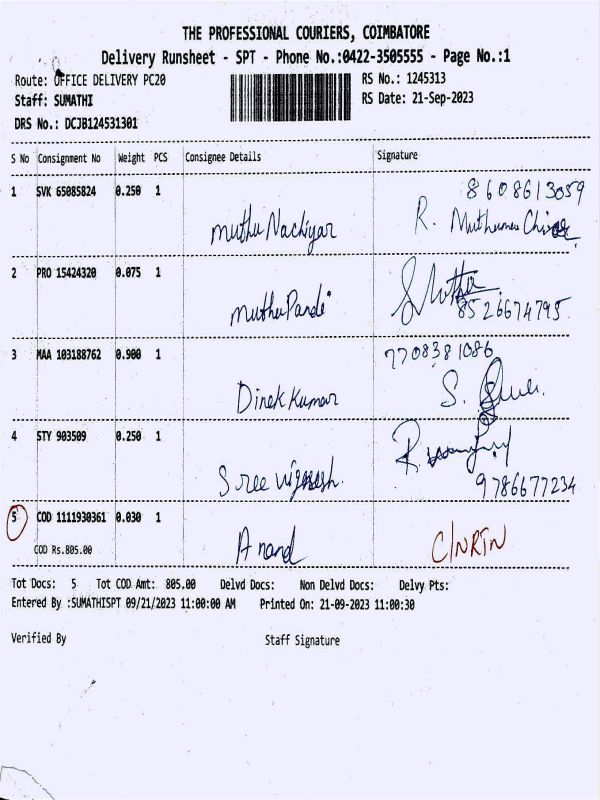 THE PROFESSIONAL COURIERS, COIMBATORE
Delivery Runsheet - SPT - Phone No.:0422-3505555 - Page No.:1
Route: OFFICE DELIVERY PC20 RS No.: 1245313
Staff: SUMATHI RS Date: 21-Sep-2023
DRS No.: DCJB124531301
S No Consignment No Weight PCS Consignee Details Signature
1 SVK 65085824 0.250 1 8608613059
Muthu Nachiyar R.
2 PRO 15424320 0.075 1
Muthu Pandi 8526674795
3 MAA 103188762 0.900 1 7708381086
Dinek Kumar S.
4 STY 903509 0.250 1
Sree Vignesh. 9786677234
5 COD 1111930361 0.030 1
COD Rs.805.00 Anand C/NRTN
Tot Docs: 5 Tot COD Amt: 805.00 Delvd Docs: Non Delvd Docs: Delvy Pts:
Entered By :SUMATHISPT 09/21/2023 11:00:00 AM Printed On: 21-09-2023 11:00:30
Verified By Staff Signature